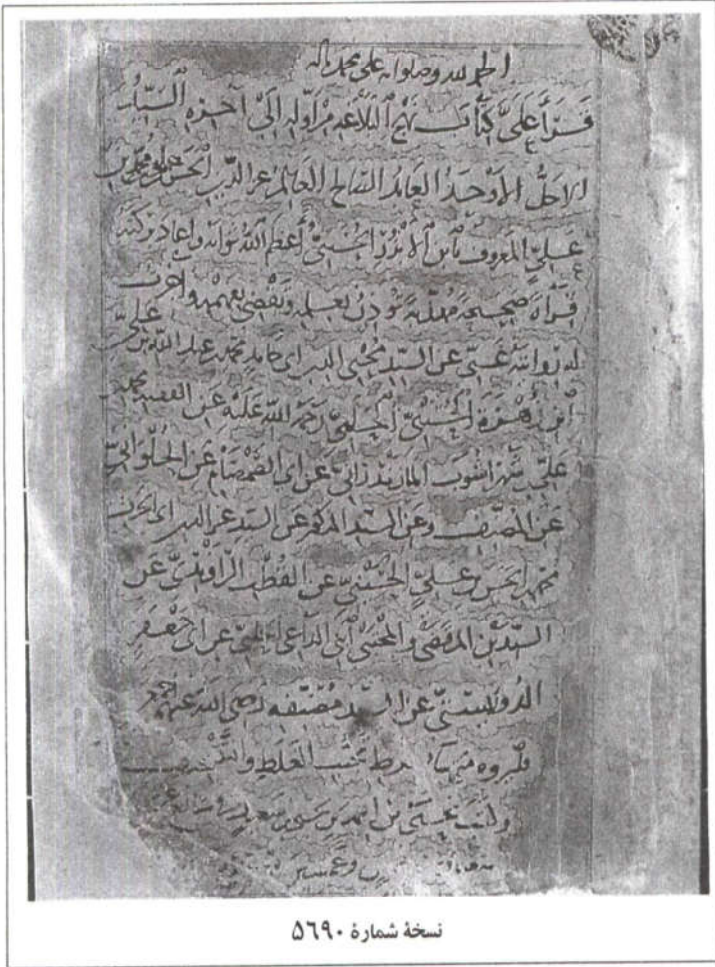 الحمد لله وصلواته على محمد وآله
قرأ عليّ كتاب نهج البلاغه من أوله إلى آخره السيد
الاجل الأوحد العابد العالم عز الدين الحسن بن علي بن محمد بن
عليّ المعروف بابن الأبزر الحسينيّ أعظم الله ثوابه وأعاد بركته
قرأة صحيحة مهذبة تؤذن بعلمه وتقضي بفهمه واجزت
له روايته عنّي عن السيد محيي الدين أبي حامد محمد بن عبد الله بن عليّ
ابن زهرة الحسينيّ الحلبيّ رحمة الله عليه عن الفقيه محمد بن
عليّ بن شهراشوب المازندرانيّ عن أبي الصمصام عن الحلوانيّ
عن المصنف وعن السيد المذكور عن السيد عز الدين أبي الحرث
محمد بن الحسن بن عليّ الحسينيّ عن القطب الراونديّ عن
السيدين المرتضى والمجتبى ابني الداعي الحسنيّ عن أبي جعفر
الدوريستيّ عن السيد مصنفه رضي الله عنهم
فليروه متى شاء تجنب الغلط والتصحيف
وكتب يحيى بن أحمد بن يحيى بن سعيد
نسخهٔ شمارهٔ ۵۶۹۰